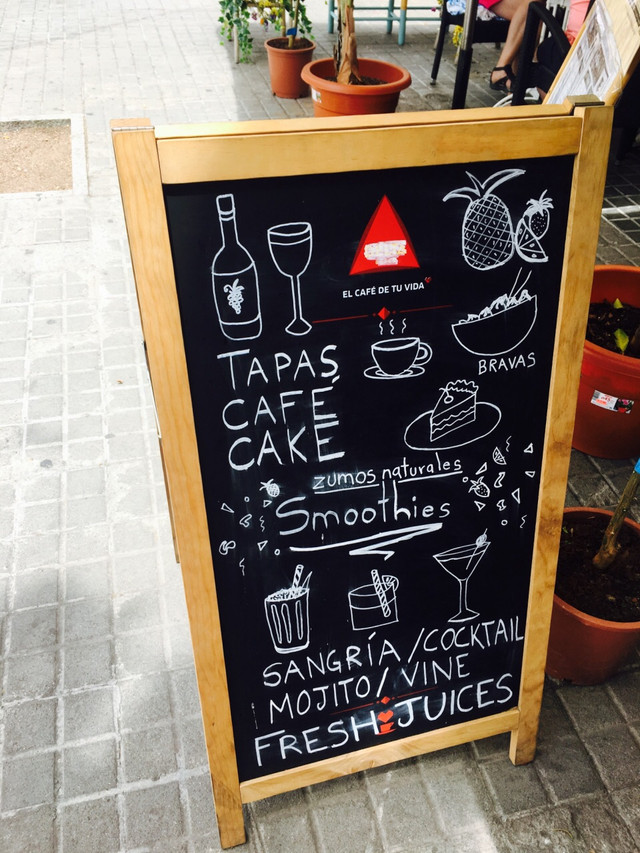 EL CAFÉ DE TU VIDA
BRAVAS
TAPAS
CAFÉ
CAKE
zumos naturales
Smoothies
SANGRÍA / COCKTAIL
MOJITO / VINE
FRESH JUICES